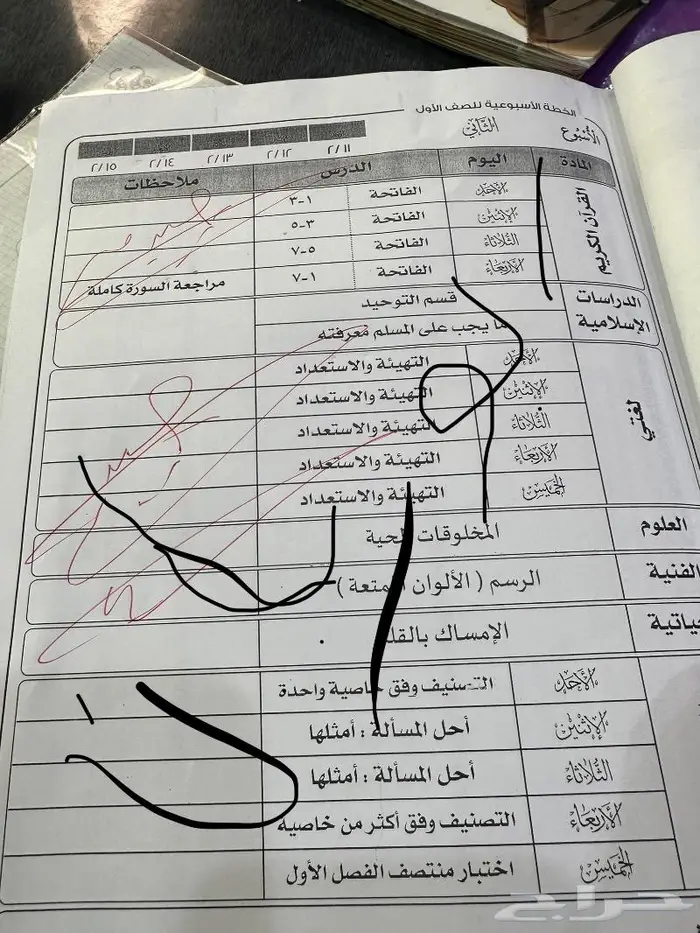 الخطة الأسبوعية للصف الأول
الأسبوع الثاني
٢/١١ ٢/١٢ ٢/١٣ ٢/١٤ ٢/١٥
المادة اليوم الدرس ملاحظات
القرآن الكريم
الأحد الفاتحة ١-٣
الإثنين الفاتحة ٣-٥
الثلاثاء الفاتحة ٥-٧
الأربعاء الفاتحة ١-٧ مراجعة السورة كاملة
الدراسات الإسلامية
قسم التوحيد
ما يجب على المسلم معرفته
لغتي
الأحد التهيئة والاستعداد
الإثنين التهيئة والاستعداد
الثلاثاء التهيئة والاستعداد
الأربعاء التهيئة والاستعداد
الخميس التهيئة والاستعداد
العلوم المخلوقات الحية
الفنية الرسم ( الألوان الممتعة )
ياتية الإمساك بالقلم
الأحد التصنيف وفق خاصية واحدة
الإثنين أحل المسألة : أمثلها
الثلاثاء أحل المسألة : أمثلها
الأربعاء التصنيف وفق أكثر من خاصيه
الخميس اختبار منتصف الفصل الأول
حراج